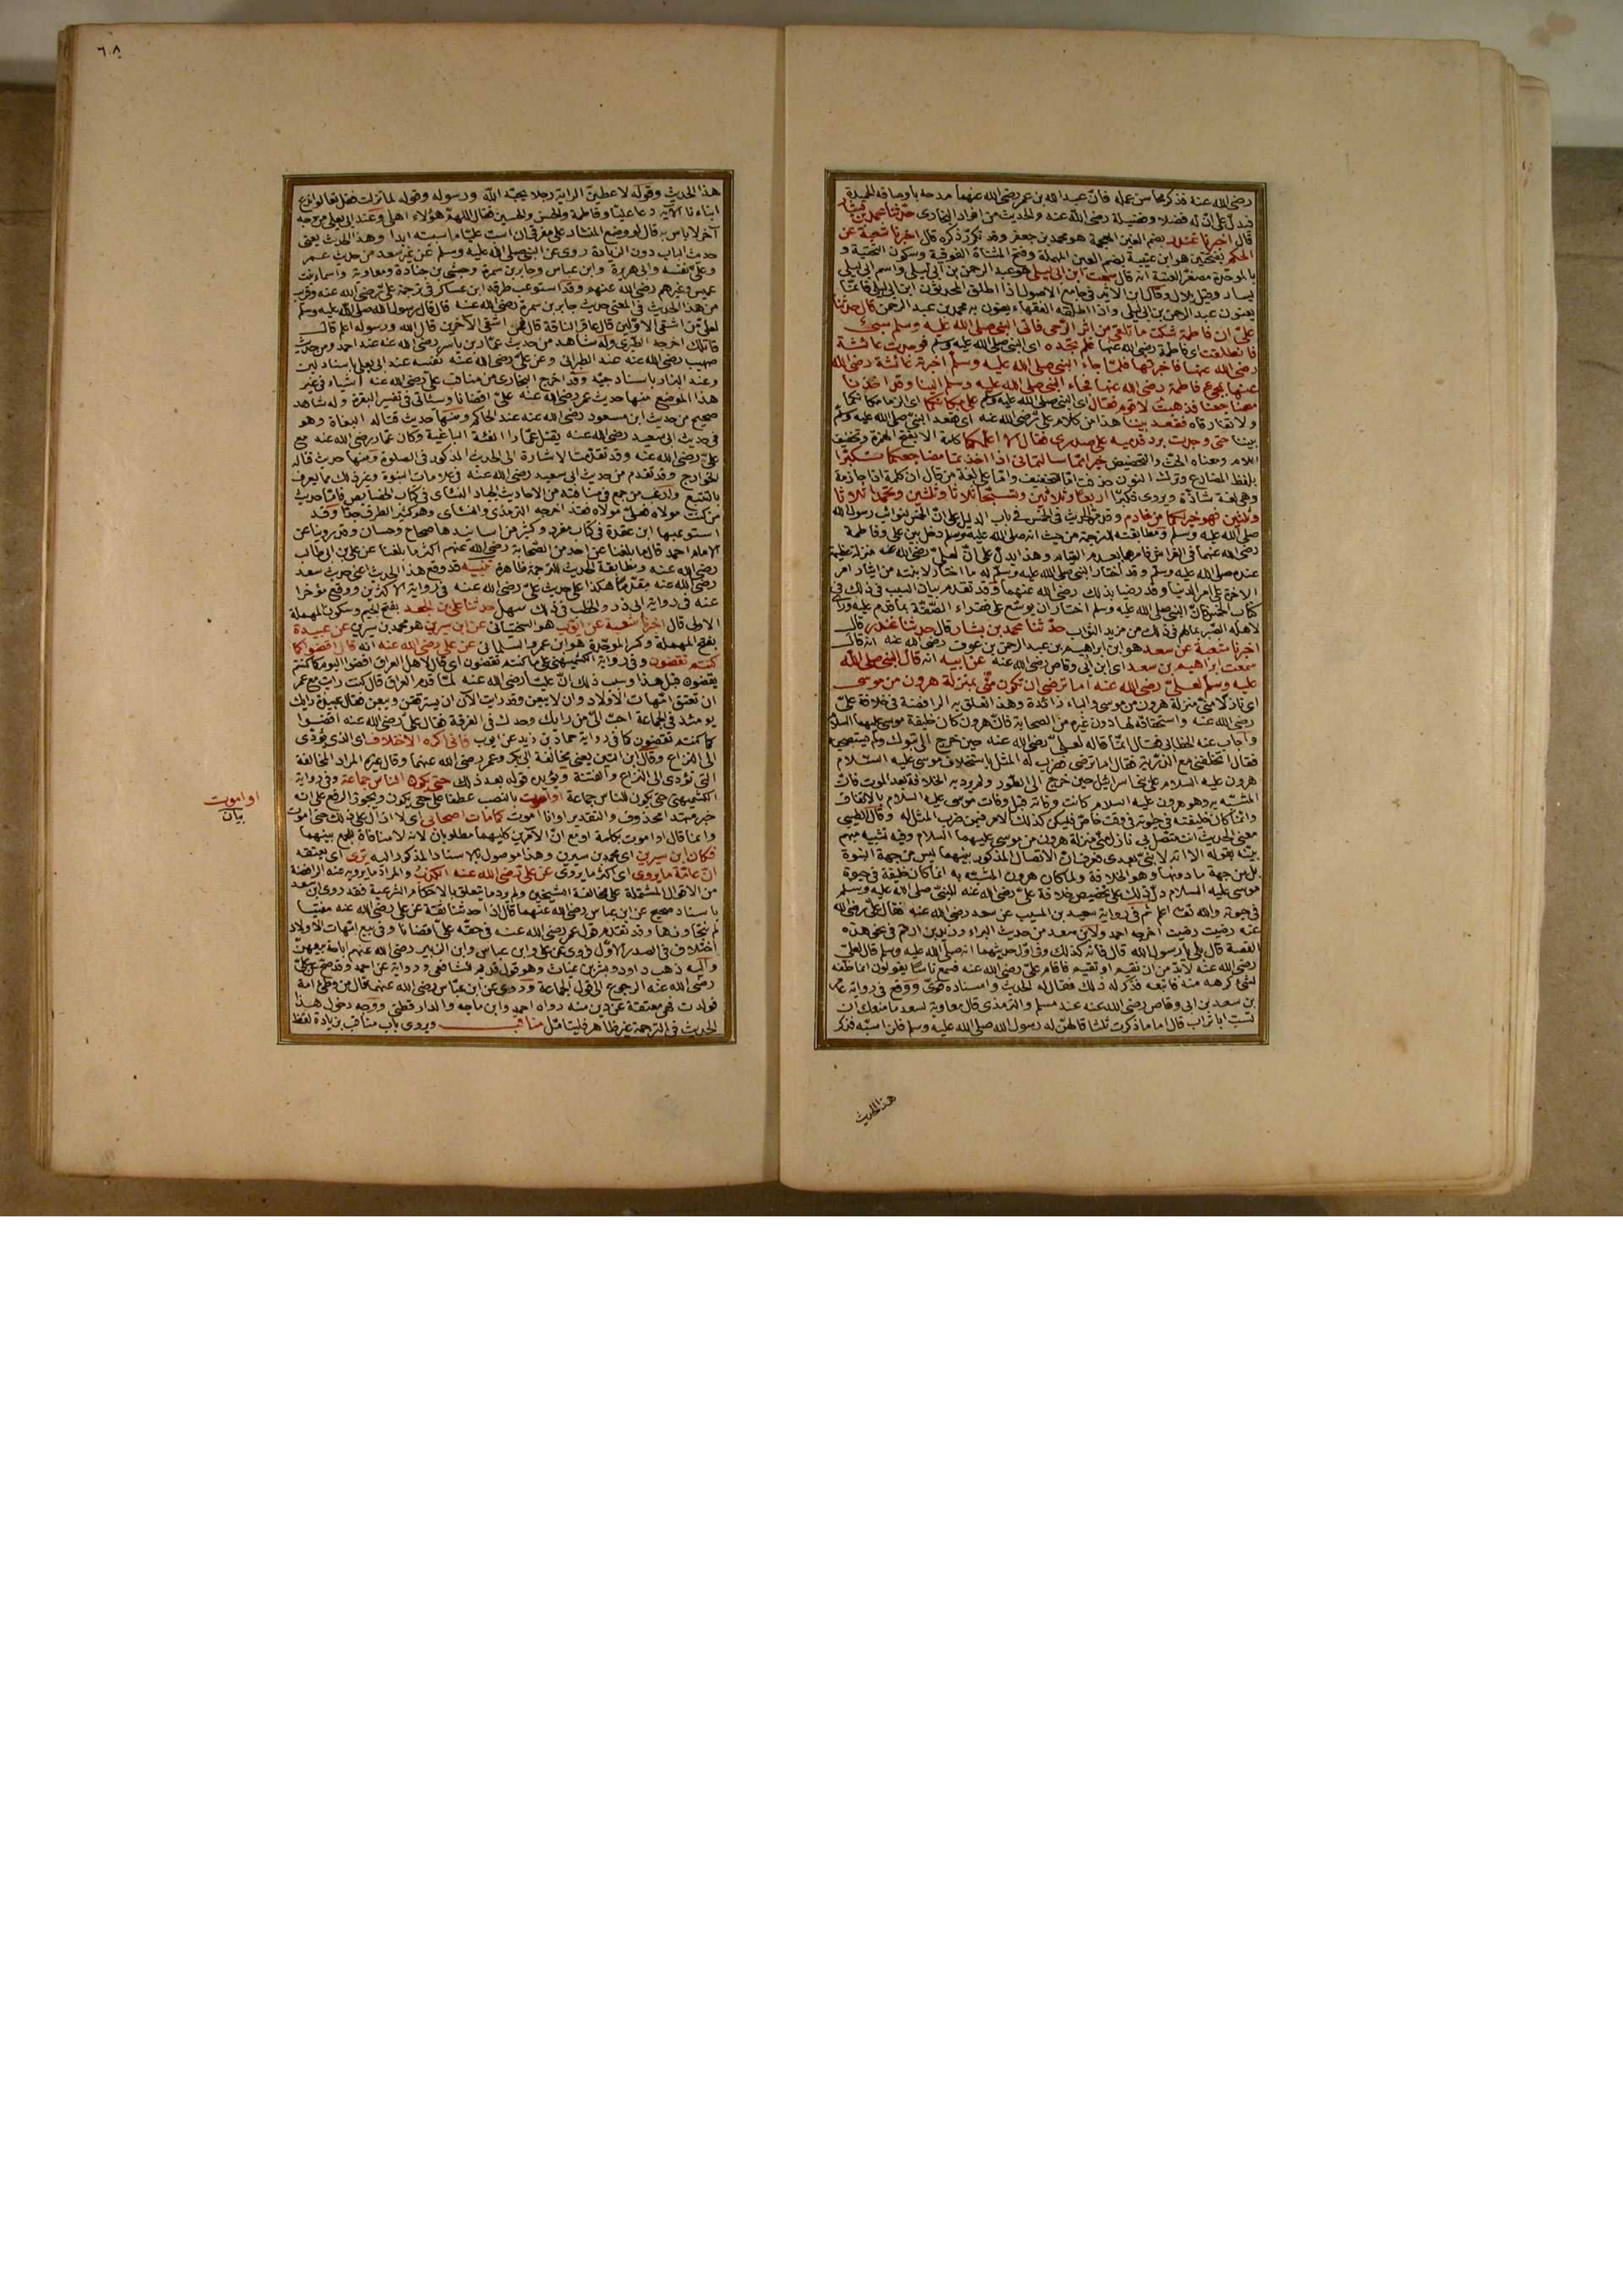 رضى الله عنه فذكر محاسن عمله فان عبد الله بن عمر رضى الله عنهما مدحه باوصافه الحميدة
فيدل على ان له فضلا وفضيلة رضى الله عنه والحديث من افراد البخارى حدثنا محمد بن بشار
قال اخبرنا غندر بضم الغين المعجمة هو محمد بن جعفر وقد تكرر ذكره قال اخبرنا شعبة عن
الحكم بفتحتين هو ابن عتيبة بضم العين المهملة وفتح المثناة الفوقية وسكون التحتية و
بالموحدة مصغر العتبة انه قال سمعت ابن ابى ليلى هو عبد الرحمن بن ابى ليلى واسم ابى ليلى
يسار وقيل بلال وقال ابن الاثير فى جامع الاصول اذا اطلق المحدثون ابن ابى ليلى فانما
يعنون عبد الرحمن بن ابى ليلى واذا اطلقه الفقهاء يعنون به محمد بن عبد الرحمن قال حدثنا
على ان فاطمة شكت ما تلقى من اثر الرحى فاتى النبى صلى الله عليه وسلم سبى
فانطلقت اى فاطمة رضى الله عنها فلم تجده اى النبى صلى الله عليه وسلم فوجدت عائشة
رضى الله عنها فاخبرتها فلما جاء النبى صلى الله عليه وسلم اخبرته عائشة رضى الله
عنها بمجئ فاطمة رضى الله عنها فجاء النبى صلى الله عليه وسلم الينا وقد اخذنا
مضاجعنا فذهبت لاقوم فقال اى النبى صلى الله عليه وسلم على مكانكما اى الزما مكانكما
ولا تفارقاه فقعد بيننا هذا من كلام على رضى الله عنه اى فقعد النبى صلى الله عليه وسلم
بيننا حتى وجدت برد قدميه على صدرى فقال الا اعلمكما كلمة الا بفتح الهمزة وتخفيف
اللام ومعناه الحث والتحضيض خيرا مما سالتمانى اذا اخذتما مضاجعكما تكبرا
بلفظ المضارع وترك النون حذفت اما للتخفيف واما على لغة من قال ان كلمة اذا جازمة
وهى لغة شاذة ويروى فكبرا اربعا وثلاثين وتسبحا ثلاثا وثلثين وتحمدا ثلاثا
وثلثين فهو خير لكما من خادم وقد مر الحديث فى الخمس فى باب الدليل على ان الخمس لنوائب رسول الله
صلى الله عليه وسلم ومطابقته للترجمة من حيث انه صلى الله عليه وسلم دخل بين على وفاطمة
رضى الله عنهما فى الفراش فامرهما بعدم القيام وهذا يدل على ان لعلى رضى الله عنه منزلة عظيمة
عنده صلى الله عليه وسلم وقد اختار النبى صلى الله عليه وسلم له ما اختار لابنته من ايثار امر
الاخرة على امر الدنيا وقد رضيا بذلك رضى الله عنهما وقد تقدم بيان السبب فى ذلك فى
كتاب الخمس فان النبى صلى الله عليه وسلم اختار ان يوسع على فقراء الصفة بما قدم عليه وراى
لاهله الصبر بمالهم فى ذلك من مزيد الثواب حدثنا محمد بن بشار قال حدثنا غندر قال
اخبرنا شعبة عن سعد هو ابن ابراهيم بن عبد الرحمن بن عوف رضى الله عنه انه قال
سمعت ابراهيم بن سعد اى ابن ابى وقاص رضى الله عنه عن ابيه انه قال النبى صلى الله
عليه وسلم لعلى رضى الله عنه اما ترضى ان تكون منى بمنزلة هرون من موسى
اى نازلا منى منزلة هرون من موسى والباء زائدة وهذا تعلق به الرافضة فى خلافة على
رضى الله عنه واستحقاقه لها دون غيره من الصحابة فان هرون كان خليفة موسى عليهما السلام
واجاب عنه الخطابى فقال انما قاله لعلى رضى الله عنه حين خرج الى تبوك ولم يستصحبه
فقال اتخلفنى مع الذرية فقال اما ترضى فضرب له المثل باستخلاف موسى عليه السلام
هرون عليه السلام على بنى اسرائيل حين خرج الى الطور ولم يرد به الخلافة بعد الموت فان
المشبه به وهو هرون عليه السلام كانت وفاته قبل وفات موسى عليه السلام بالاتفاق
وانما كان خليفته فى حيوته فى وقت خاص فليكن كذلك الامر فيمن ضرب المثل له وقال الطيبى
معنى الحديث انت متصل بى نازل منى منزلة هرون من موسى عليهما السلام وفيه تشبيه مبهم
بينه بقوله الا انه لا نبى بعدى فعرف ان الاتصال المذكور بينهما ليس من جهة النبوة
بل من جهة ما دونها وهو الخلافة ولما كان هرون المشبه به انما كان خليفة فى حيوة
موسى عليه السلام دل ذلك على تخصيص خلافة على رضى الله عنه للنبى صلى الله عليه وسلم
فى حيوته والله تعا اعلم ثم فى رواية سعيد بن المسيب عن سعد رضى الله عنه فقال على رضى الله
عنه رضيت رضيت اخرجه احمد ولابن سعد من حديث البراء وزيد بن ارقم فى نحو هذه
القصة قال بلى يا رسول الله قال فانه كذلك وفى اول حديثهما انه صلى الله عليه وسلم قال لعلى
رضى الله عنه لابد من ان تقيم او نقيم فاقام على رضى الله عنه فسمع ناسا يقولون انما خلفه
لشئ كرهه منه فاتبعه فذكر له ذلك فقال له الحديث واسناده قوى ووقع فى رواية عامر
بن سعد بن ابى وقاص رضى الله عنه عند مسلم والترمذى قال معاوية لسعد ما منعك ان
تسب ابا تراب قال اما ما ذكرت ثلثا قالهن له رسول الله صلى الله عليه وسلم فلن اسبه فذكر
هذا الحديث
٦٠٨
هذا الحديث وقوله لاعطين الراية رجلا يحبه الله ورسوله وقوله لما نزلت فقل تعالوا ندع
ابناءنا الآية دعا عليا وفاطمة والحسن والحسين فقال اللهم هؤلاء اهلى وعند ابى يعلى من وجه
آخر لا باس به قال لو وضع المنشار على مفرقى ان اسب عليا ما سببته ابدا وهذا الحديث يعنى
حديث الباب دون الزيادة روى عن النبى صلى الله عليه وسلم عن غير سعد من حديث عمر
وعلى نفسه وابى هريرة وابن عباس وجابر بن سمرة وحبشى بن جنادة ومعاوية واسماء بنت
عميس وغيرهم رضى الله عنهم وقد استوعب طرقه ابن عساكر فى ترجمة على رضى الله عنه وقرب
من هذا الحديث فى المعنى حديث جابر بن سمرة رضى الله عنه قال قال رسول الله صلى الله عليه وسلم
لعلى من اشقى الاولين قال عاقر الناقة قال فمن اشقى الآخرين قال الله ورسوله اعلم قال
قاتلك اخرجه الطبرى وله شاهد من حديث عمار بن ياسر رضى الله عنه عند احمد ومن حديث
صهيب رضى الله عنه عند الطبرانى وعن على رضى الله عنه نفسه عند ابى يعلى باسناد لين
وعند البزار باسناد جيد وقد اخرج البخارى من مناقب على رضى الله عنه اشياء فى غير
هذا الموضع منها حديث عمر رضى الله عنه على اقضانا وسياتى فى تفسير البقرة وله شاهد
صحيح من حديث ابن مسعود رضى الله عنه عند الحاكم ومنها حديث قتاله البغاة وهو
فى حديث ابى سعيد رضى الله عنه يقتل عمارا الفئة الباغية وكان عمار رضى الله عنه مع
على رضى الله عنه وقد تقدمت الاشارة الى الحديث المذكور فى الصلوة ومنها حديث قتاله
الخوارج وقد تقدم من حديث ابى سعيد رضى الله عنه فى علامات النبوة وغير ذلك مما يعرف
بالتتبع واوعب من جمع فى مناقبه من الاحاديث الجياد النسائى فى كتاب الخصايص فاما حديث
من كنت مولاه فعلى مولاه فقد اخرجه الترمذى والنسائى وهو كثير الطرق جدا وقد
استوعبها ابن عقدة فى كتاب مفرد وكثير من اسانيدها صحاح وحسان وقد روينا عن
الامام احمد قال ما بلغنا عن احد من الصحابة رضى الله عنهم اكثر ما بلغنا عن على بن ابى طالب
رضى الله عنه ومطابقة الحديث للترجمة ظاهرة تنبيه قد وقع هذا الحديث اعنى حديث سعد
رضى الله عنه مقدما هكذا على حديث على رضى الله عنه فى رواية الاكثرين ووقع مؤخرا
عنه فى رواية ابى ذر والخطب فى ذلك سهل حدثنا على بن الجعد بفتح الجيم وسكون المهملة
الاولى قال اخبرنا شعبة عن ايوب هو السختيانى عن ابن سيرين هو محمد بن سيرين عن عبيدة
بفتح المهملة وكسر الموحدة هو ابن عمرو السلمانى عن على رضى الله عنه انه قال اقضوا كما
كنتم تقضون وفى رواية الكشميهنى على ما كنتم تقضون اى قال لاهل العراق اقضوا اليوم كما كنتم
يقضون قبل هذا وسبب ذلك ان عليا رضى الله عنه لما قدم العراق قال كنت رايت مع عمر
ان تعتق امهات الاولاد وان لا يبعن وقد رايت الآن ان يسترققن ويبعن فقال عبيدة رايك
يومئذ فى الجماعة احب الى من رايك وحدك فى الفرقة فقال على رضى الله عنه اقضوا
كما كنتم تقضون كما فى رواية حماد بن زيد عن ايوب فانى اكره الاختلاف اى الذى يؤدى
الى النزاع وقال ابن التين يعنى مخالفة ابى بكر وعمر رضى الله عنهما وقال غيره المراد المخالفة
التى تؤدى الى النزاع والفتنة ويؤيده قوله بعد ذلك حتى يكون الناس جماعة وفى رواية
الكشميهنى حتى يكون للناس جماعة او اموت بالنصب عطفا على حتى يكون ويجوز الرفع على انه
خبر مبتدا محذوف والتقدير او انا اموت كما مات اصحابى اى لا ازال على ذلك حتى اموت
وانما قال او اموت بكلمة او مع ان الامرين كليهما مطلوبان لانه لا منافاة للجمع بينهما
فكان ابن سيرين اى محمد بن سيرين وهذا موصول بالاسناد المذكور اليه يرى اى يعتقد
ان عامة ما يروى اى اكثر ما يروى عن على رضى الله عنه الكذب والمراد ما يرويه عنه الرافضة
من الاقوال المشتملة على مخالفة الشيخين ولم يرد ما يتعلق بالاحكام الشرعية فقد روى ابن سعد
باسناد صحيح عن ابن عباس رضى الله عنهما قال اذا حدثنا ثقة عن على رضى الله عنه بفتيا
لم نتجاوزها وقد تقدم قول عمر رضى الله عنه فى حقه على اقضانا وفى بيع امهات الاولاد
اختلاف فى الصدر الاول فروى عن على وابن عباس وابن الزبير رضى الله عنهم اباحة بيعهن
واليه ذهب داود وبشر بن غياث وهو قول قديم للشافعى ورواية عن احمد وقد صح عن على
رضى الله عنه الرجوع الى قول الجماعة وروى عن ابن عباس رضى الله عنهما قال من وطئ امة
فولدت فهى معتقة عن دبر منه رواه احمد وابن ماجه والدارقطنى ووجه دخول هذا
الحديث فى الترجمة غير ظاهر فليتامل مناقب ويروى باب مناقب بزيادة لفظ
او اموت
بيان